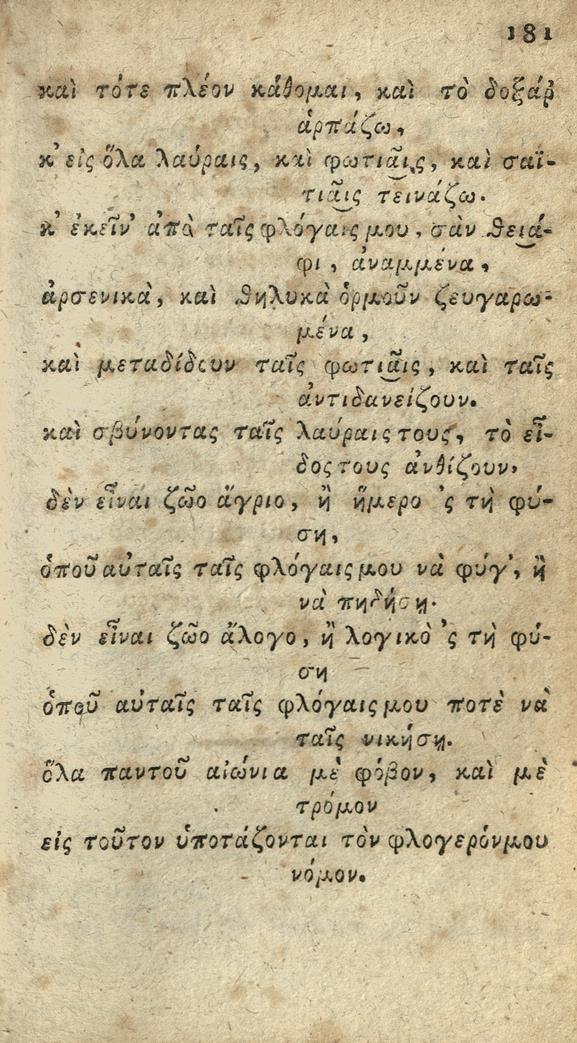 181
καὶ τότε πλέον κάθομαι, καὶ τὸ δοξάρι
ἁρπάζω,
κ' εἰς ὅλα λαύραις, καὶ φωτιαῖς, καὶ σαϊ-
τιαῖς τεινάζω.
κ' ἐκεῖν' ἀπὸ ταῖς φλόγαις μου, σὰν θειά-
φι, ἀναμμένα,
ἀρσενικὰ, καὶ θηλυκὰ ὁρμοῦν ζευγαρω-
μένα,
καὶ μεταδίδουν ταῖς φωτιαῖς, καὶ ταῖς
ἀντιδανείζουν.
καὶ σβύνοντας ταῖς λαύραις τους, τὸ εἶ-
δος τους ἀνθίζουν,
δὲν εἶναι ζῶο ἄγριο, ἢ ἥμερο 'ς τὴ φύ-
ση,
ὁποῦ αὐταῖς ταῖς φλόγαις μου νὰ φύγ', ἢ
νὰ πηδήσῃ.
δὲν εἶναι ζῶο ἄλογο, ἢ λογικὸ 'ς τὴ φύ-
ση
ὁποῦ αὐταῖς ταῖς φλόγαις μου ποτὲ νὰ
ταῖς νικήσῃ.
ὅλα παντοῦ αἰώνια μὲ φόβον, καὶ μὲ
τρόμον
εἰς τοῦτον ὑποτάζονται τὸν φλογερόνμου
νόμον.